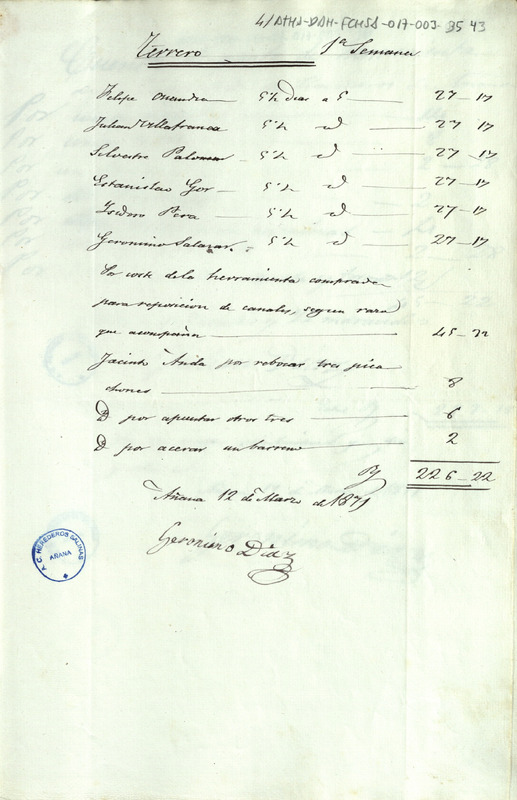 4/ATHA-DAH-FCHSA-017-003-35 43
Terrero 1ª Semana
Felipe 5½ dias a 5 27-17
Julian Villafranca 5½ id 27-17
Silvestre Palomar 5½ id 27-17
Estanislao Gor 5½ id 27-17
Ysidro Pera 5½ id 27-17
Geronimo Salazar 5½ id 27-17
Por coste de la herramienta comprada
para reposicion de canales, segun
que acompaña 45-22
Jacinto por rebocar tres pica
chones 8
D por apuntar otros tres 6
D por acerar un barreno 2
226-22
Añana 12 de Marzo de 1871
Geronimo Diaz
A. C. HEREDEROS SALINAS
AÑANA